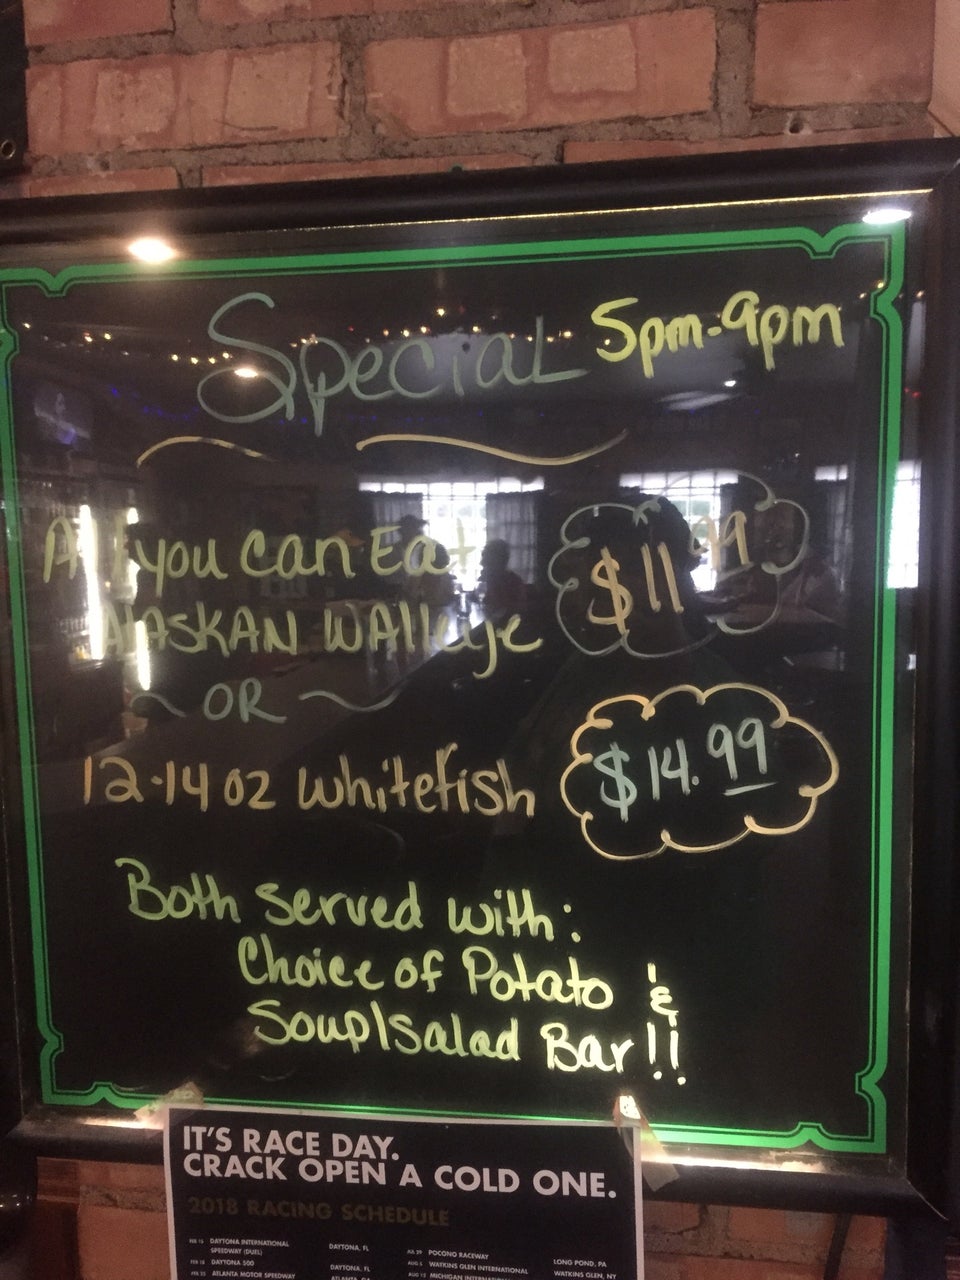 Special 5pm-9pm
All you can Eat
ALASKAN WAlleye
$11.99
~ OR ~
12-14 oz whitefish
$14.99
Both served with:
Choice of Potato &
Soup/Salad Bar!!
IT'S RACE DAY.
CRACK OPEN A COLD ONE.
2018 RACING SCHEDULE
FEB 15 DAYTONA INTERNATIONAL SPEEDWAY (DUEL) DAYTONA, FL
FEB 18 DAYTONA 500 DAYTONA, FL
ATLANTA MOTOR SPEEDWAY
POCONO RACEWAY LONG POND, PA
AUG 5 WATKINS GLEN INTERNATIONAL WATKINS GLEN, NY
MICHIGAN